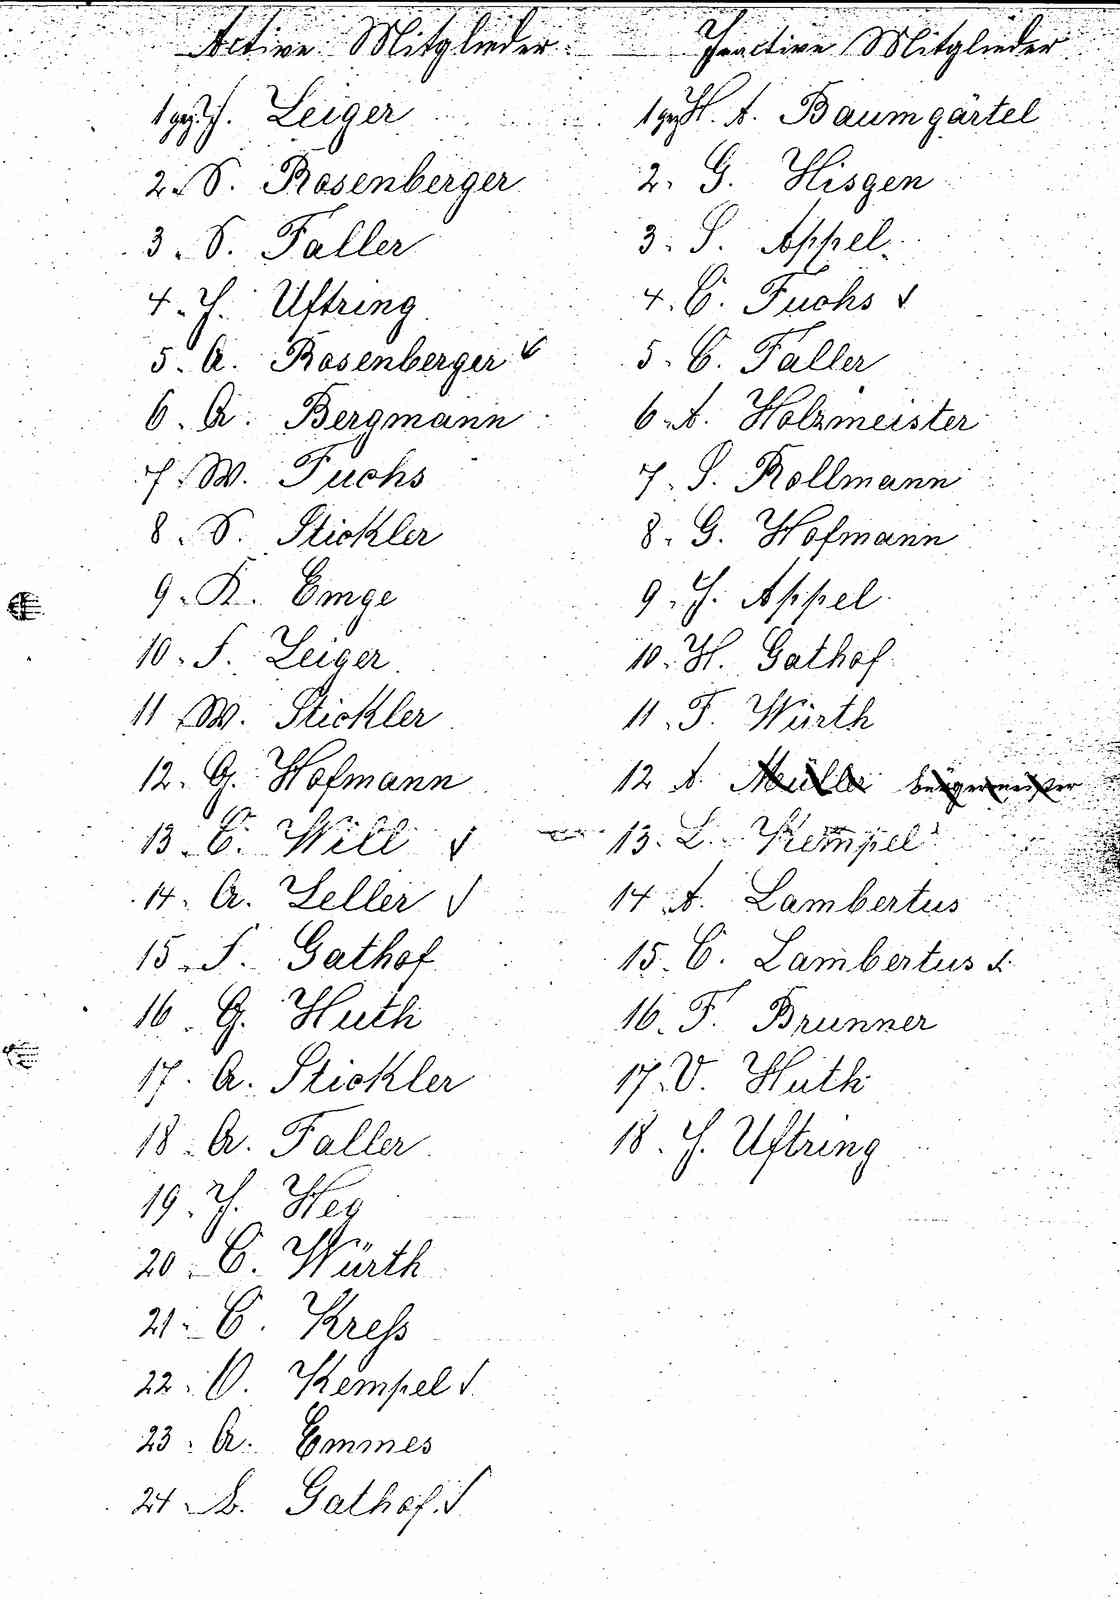 Active Mitglieder
1 gez. J. Leiger
2. S. Rosenberger
3. S. Faller
4. J. Uftring
5. A. Rosenberger ✓
6. A. Bergmann
7. W. Fuchs
8. S. Stickler
9. K. Emge
10. F. Leiger
11 W. Stickler
12. G. Hofmann
13. C. Will ✓
14. A. Zeller ✓
15. F. Gathof
16. G. Huth
17. A. Stickler
18. A. Faller
19. J. Heg
20. C. Würth
21. C. Kreß
22. O. Kempel ✓
23. A. Emmes
24 L. Gathof. ✓
Inactive Mitglieder
1 gez H. A. Baumgärtel
2. G. Hisgen
3. S. Appel.
4. C. Fuchs ✓
5. C. Faller
6. A. Holzmeister
7. S. Rollmann
8. G. Hofmann
9. J. Appel
10. H. Gathof
11. F. Würth
12 A. Müller bürgermeister
13. L. Kempel
14 A. Lambertus
15. C. Lambertus ✓
16. F. Brunner
17. V. Huth
18. J. Uftring